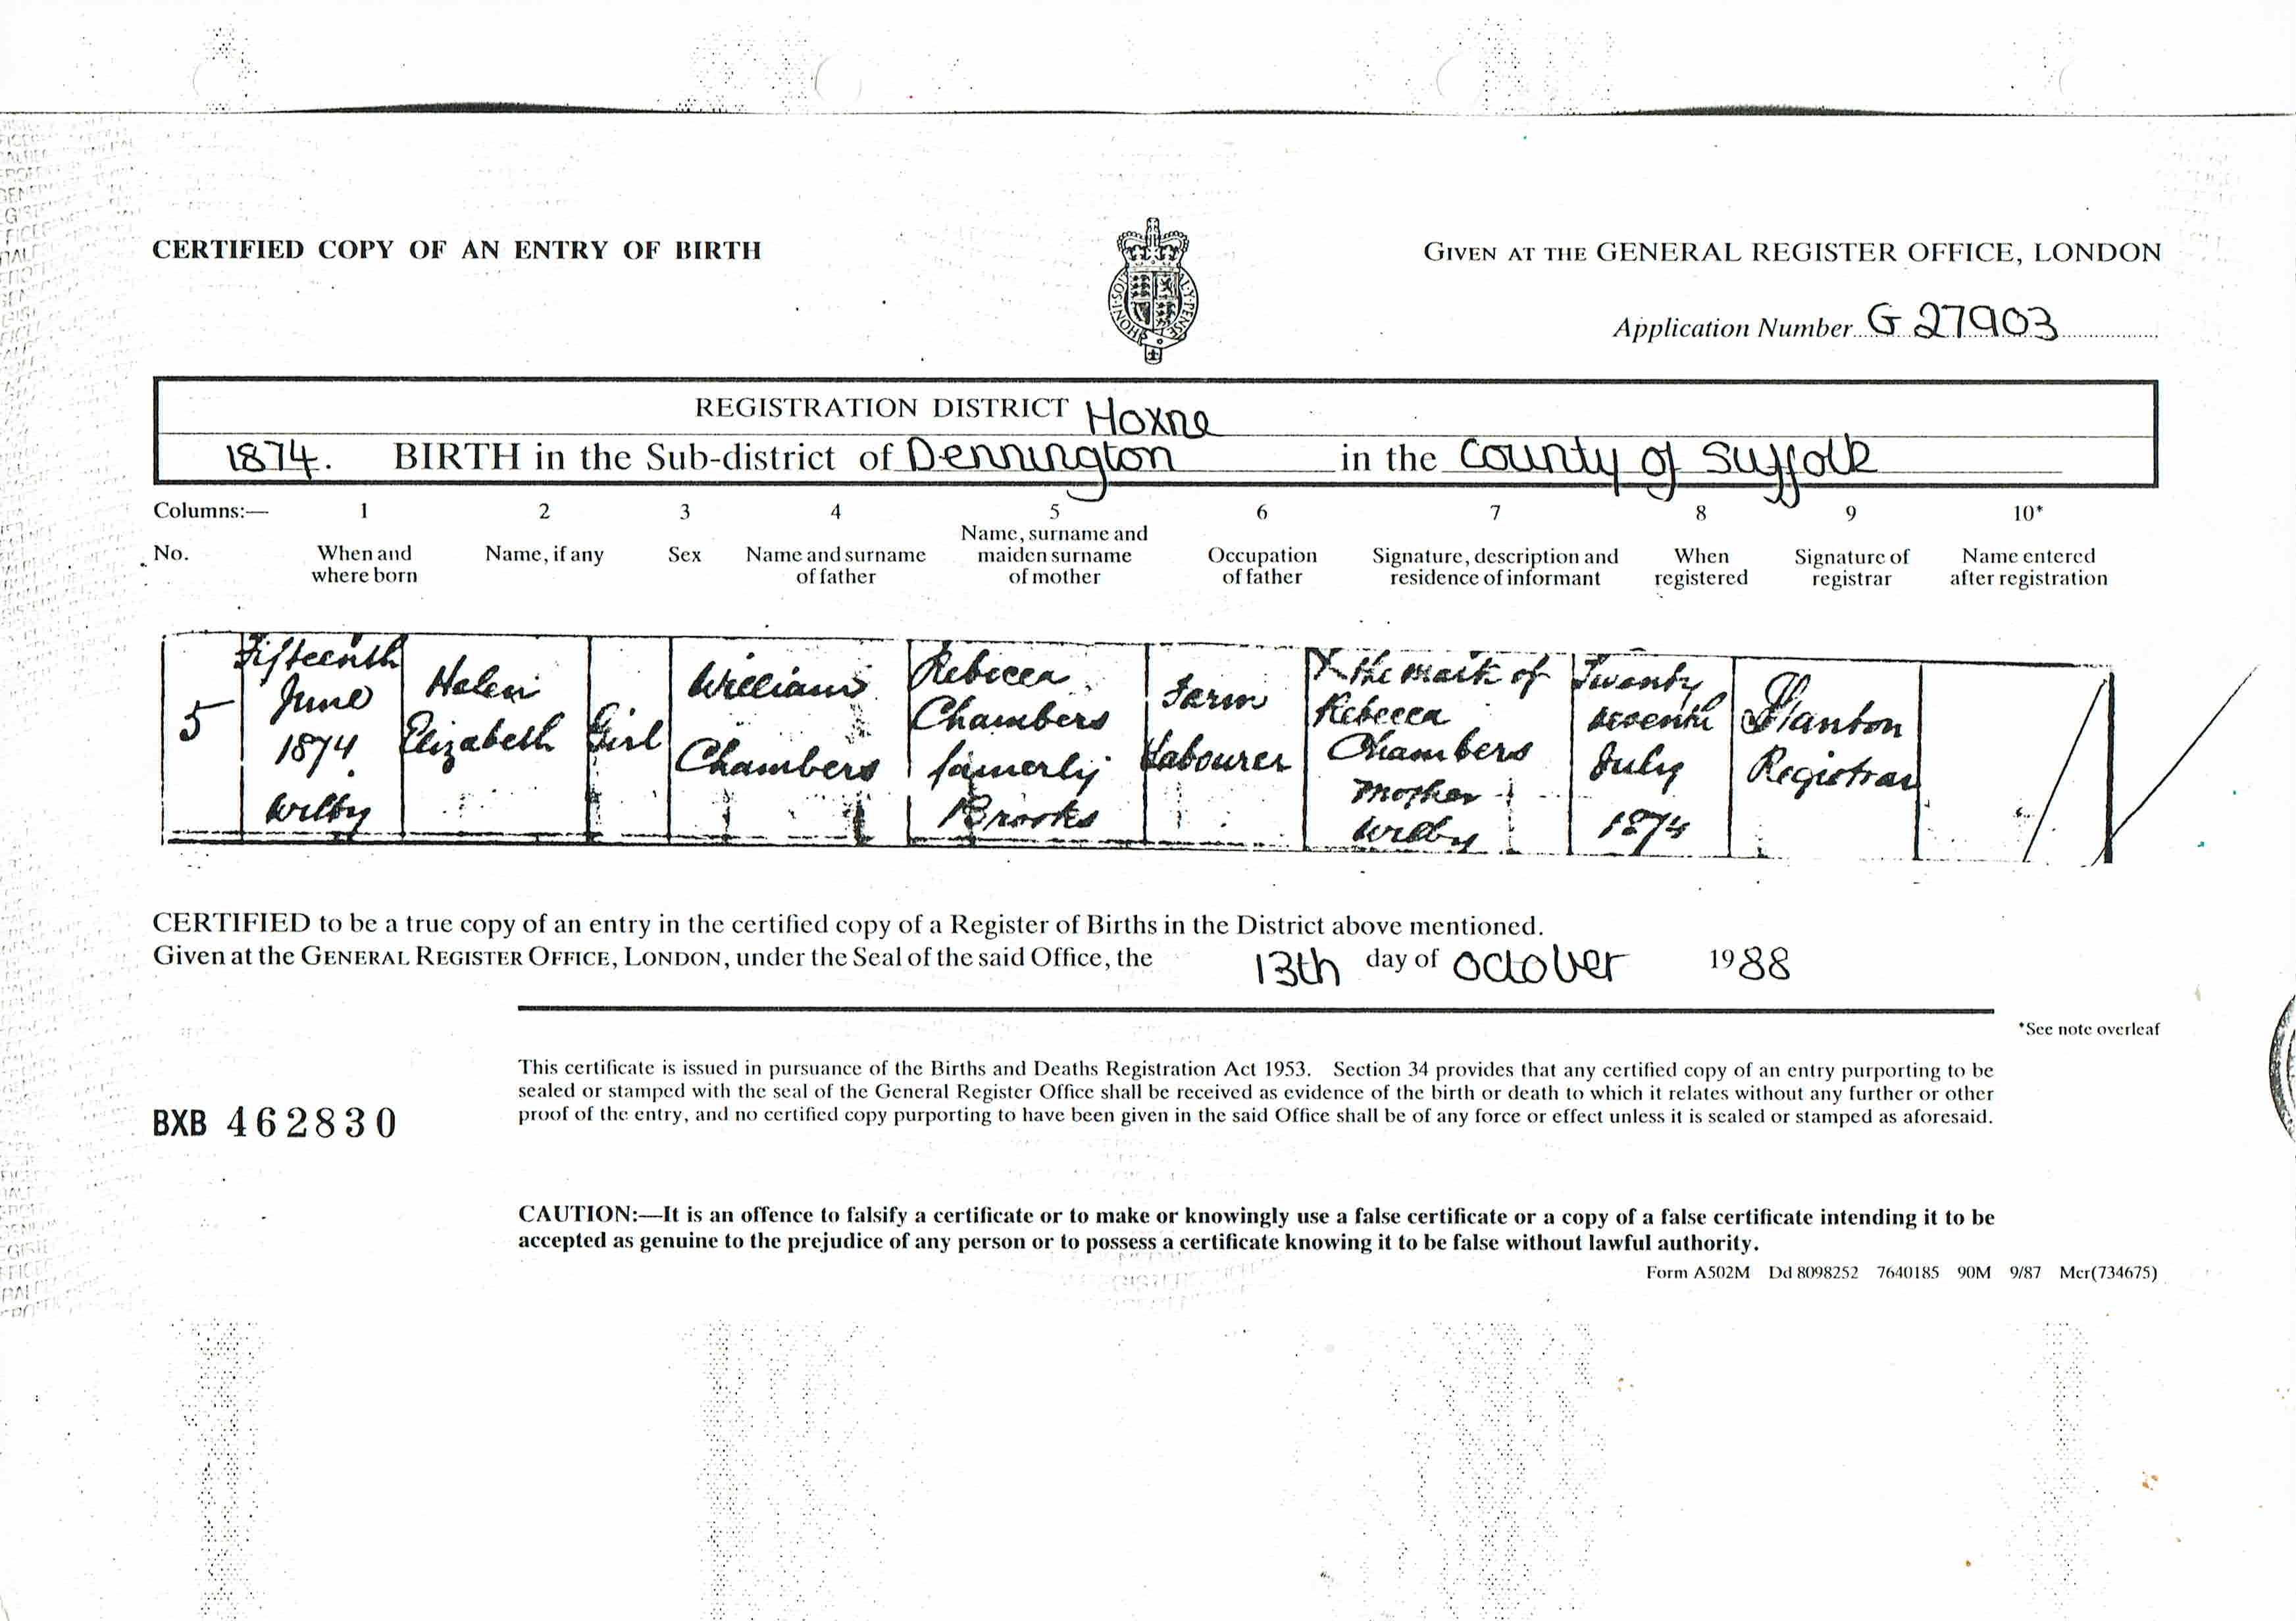 CERTIFIED COPY OF AN ENTRY OF BIRTH
GIVEN AT THE GENERAL REGISTER OFFICE, LONDON
Application Number G 27903
REGISTRATION DISTRICT Hoxne
1874. BIRTH in the Sub-district of Dennington in the County of Suffolk
Columns:— 1 2 3 4 5 6 7 8 9 10*
No.
When and
where born
Name, if any
Sex
Name and surname
of father
Name, surname and
maiden surname
of mother
Occupation
of father
Signature, description and
residence of informant
When
registered
Signature of
registrar
Name entered
after registration
5
Fifteenth
June
1874
Wilby
Helen
Elizabeth
Girl
William
Chambers
Rebecca
Chambers
formerly
Brooks
Farm
Labourer
X the mark of
Rebecca
Chambers
Mother
Wilby
Twenty
seventh
July
1874
Stanton
Registrar
CERTIFIED to be a true copy of an entry in the certified copy of a Register of Births in the District above mentioned.
Given at the GENERAL REGISTER OFFICE, LONDON, under the Seal of the said Office, the 13th day of October 1988
*See note overleaf
This certificate is issued in pursuance of the Births and Deaths Registration Act 1953. Section 34 provides that any certified copy of an entry purporting to be
sealed or stamped with the seal of the General Register Office shall be received as evidence of the birth or death to which it relates without any further or other
proof of the entry, and no certified copy purporting to have been given in the said Office shall be of any force or effect unless it is sealed or stamped as aforesaid.
BXB 462830
CAUTION:—It is an offence to falsify a certificate or to make or knowingly use a false certificate or a copy of a false certificate intending it to be
accepted as genuine to the prejudice of any person or to possess a certificate knowing it to be false without lawful authority.
Form A502M Dd 8098252 7640185 90M 9/87 Mcr(734675)